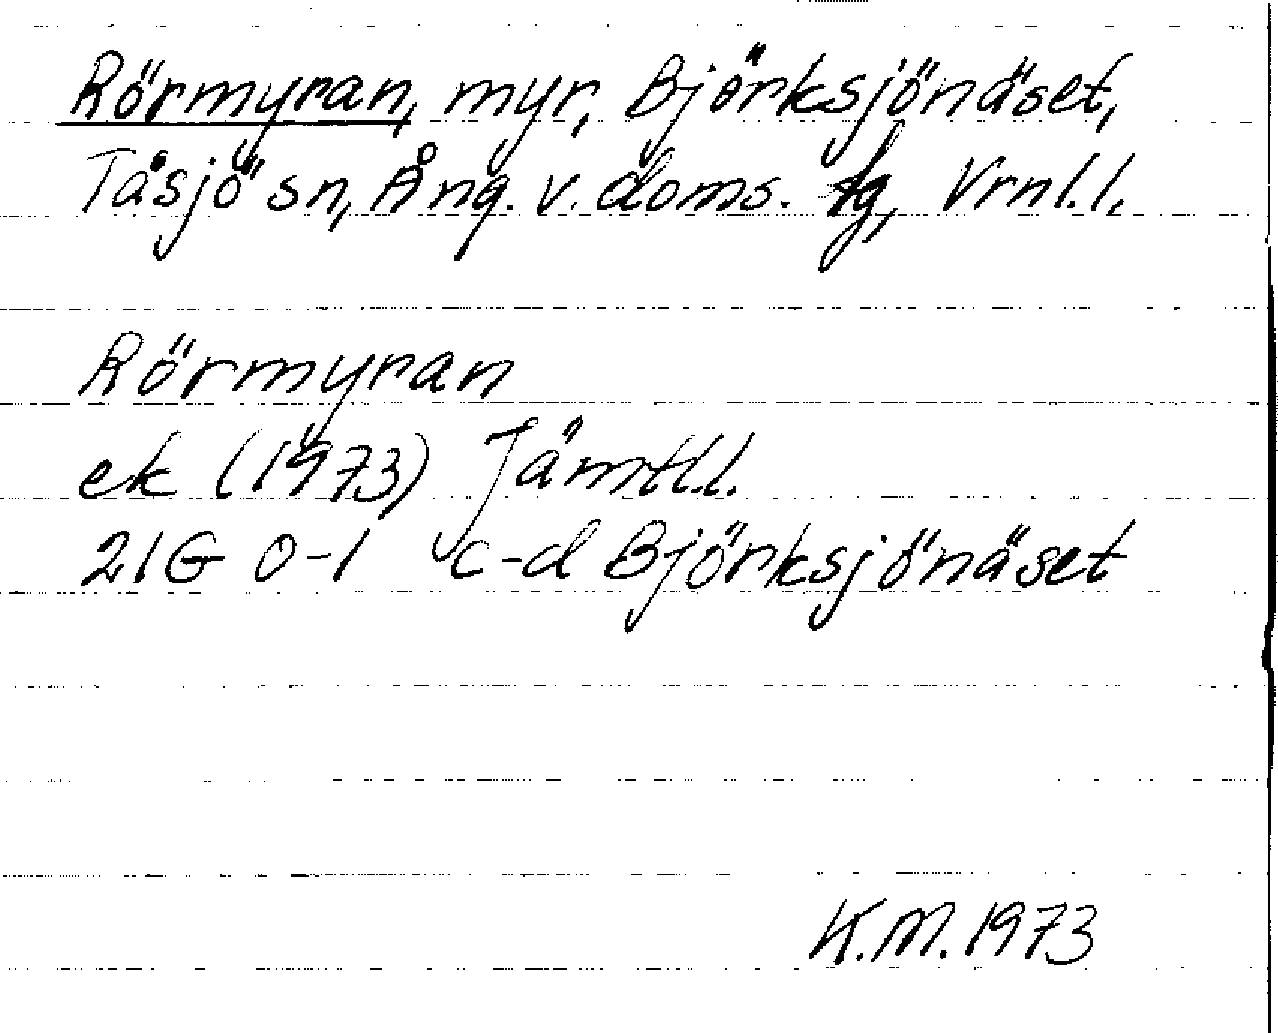 Rörmyran, myr, Björksjönäset,
Tåsjö sn, Ång. v. doms. tg, Vrnl.l.
Rörmyran
ek (1973) Jämtl.l.
21G 0-1 c-d Björksjönäset
K.M. 1973